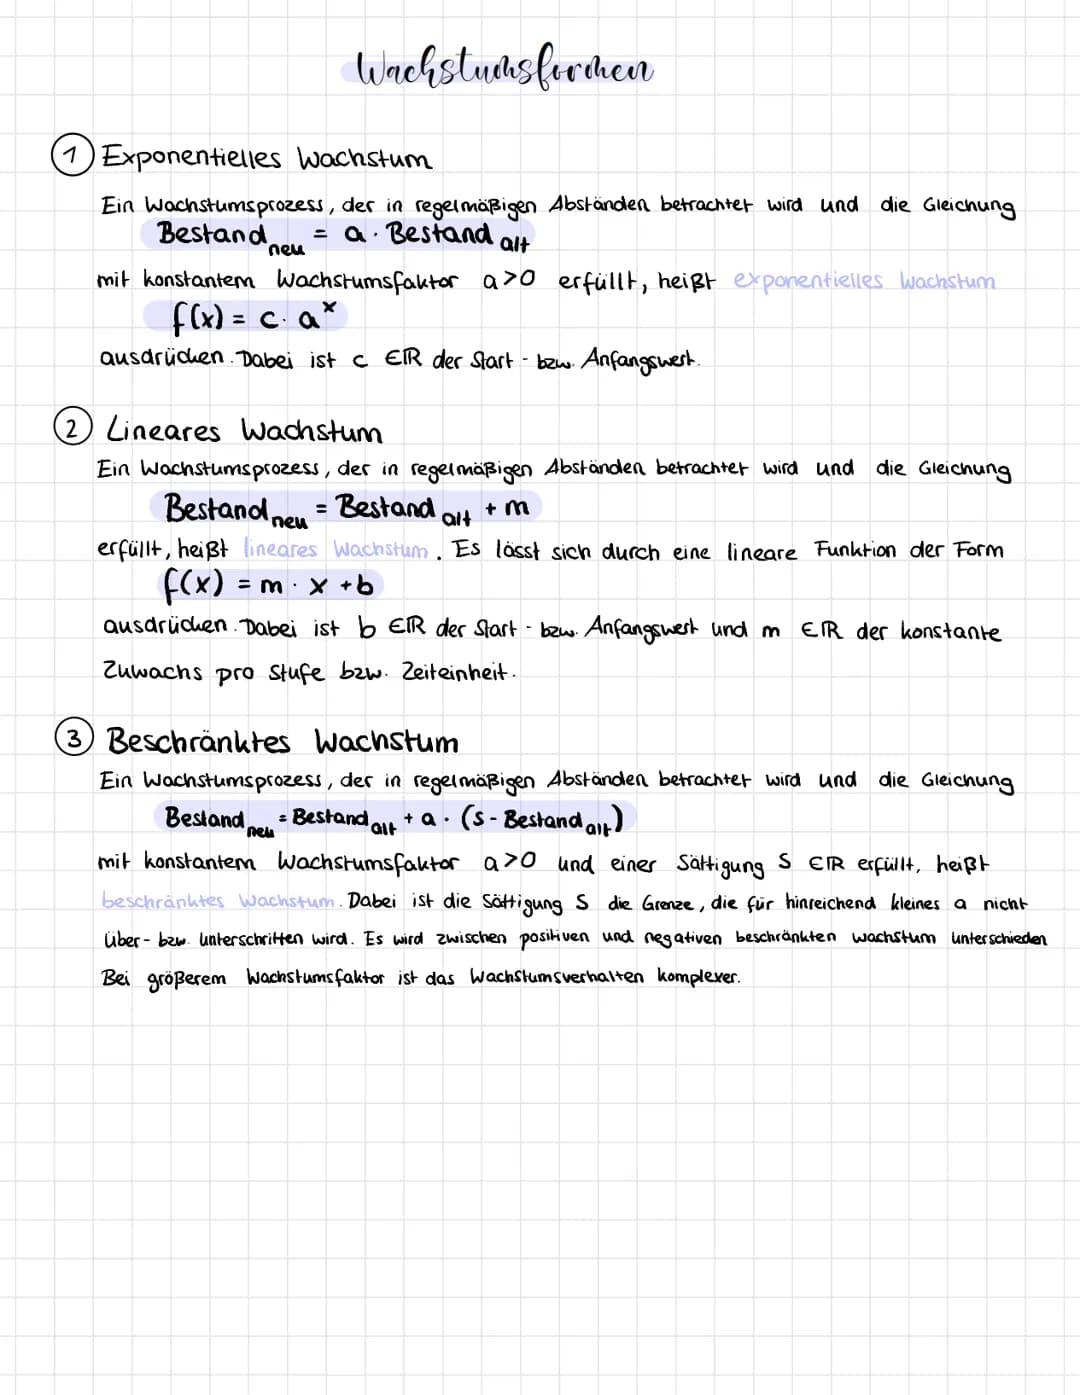 Wachstumsformen
1 Exponentielles Wachstum
Ein Wachstumsprozess, der in regelmäßigen Abständen betrachtet wird und die Gleichung
Bestand neu = a · Bestand alt
mit konstantem Wachstumsfaktor a>0 erfüllt, heißt exponentielles Wachstum
f(x) = c · a^x
ausdrücken. Dabei ist c ∈ℝ der Start- bzw. Anfangswert.
2 Lineares Wachstum
Ein Wachstumsprozess, der in regelmäßigen Abständen betrachtet wird und die Gleichung
Bestand neu = Bestand alt + m
erfüllt, heißt lineares Wachstum. Es lässt sich durch eine lineare Funktion der Form
f(x) = m · x + b
ausdrücken. Dabei ist b ∈ℝ der Start- bzw. Anfangswert und m ∈ℝ der konstante
Zuwachs pro Stufe bzw. Zeiteinheit.
3 Beschränktes Wachstum
Ein Wachstumsprozess, der in regelmäßigen Abständen betrachtet wird und die Gleichung
Bestand neu = Bestand alt + a · (S - Bestand alt)
mit konstantem Wachstumsfaktor a>0 und einer Sättigung S ∈ℝ erfüllt, heißt
beschränktes Wachstum. Dabei ist die Sättigung S die Grenze, die für hinreichend kleines a nicht
über- bzw. unterschritten wird. Es wird zwischen positiven und negativen beschränkten wachstum unterschieden
Bei größerem Wachstumsfaktor ist das Wachstumsverhalten komplexer.